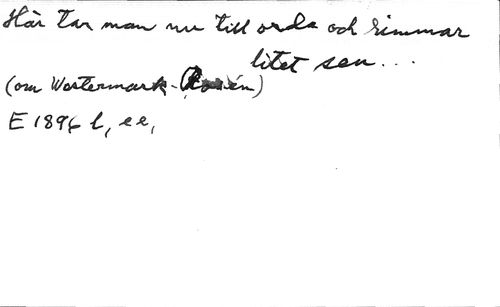 Här tar man nu till orda och rimmar
litet sen...
(om Westermark-Rosén)
E 1896 l, ee,